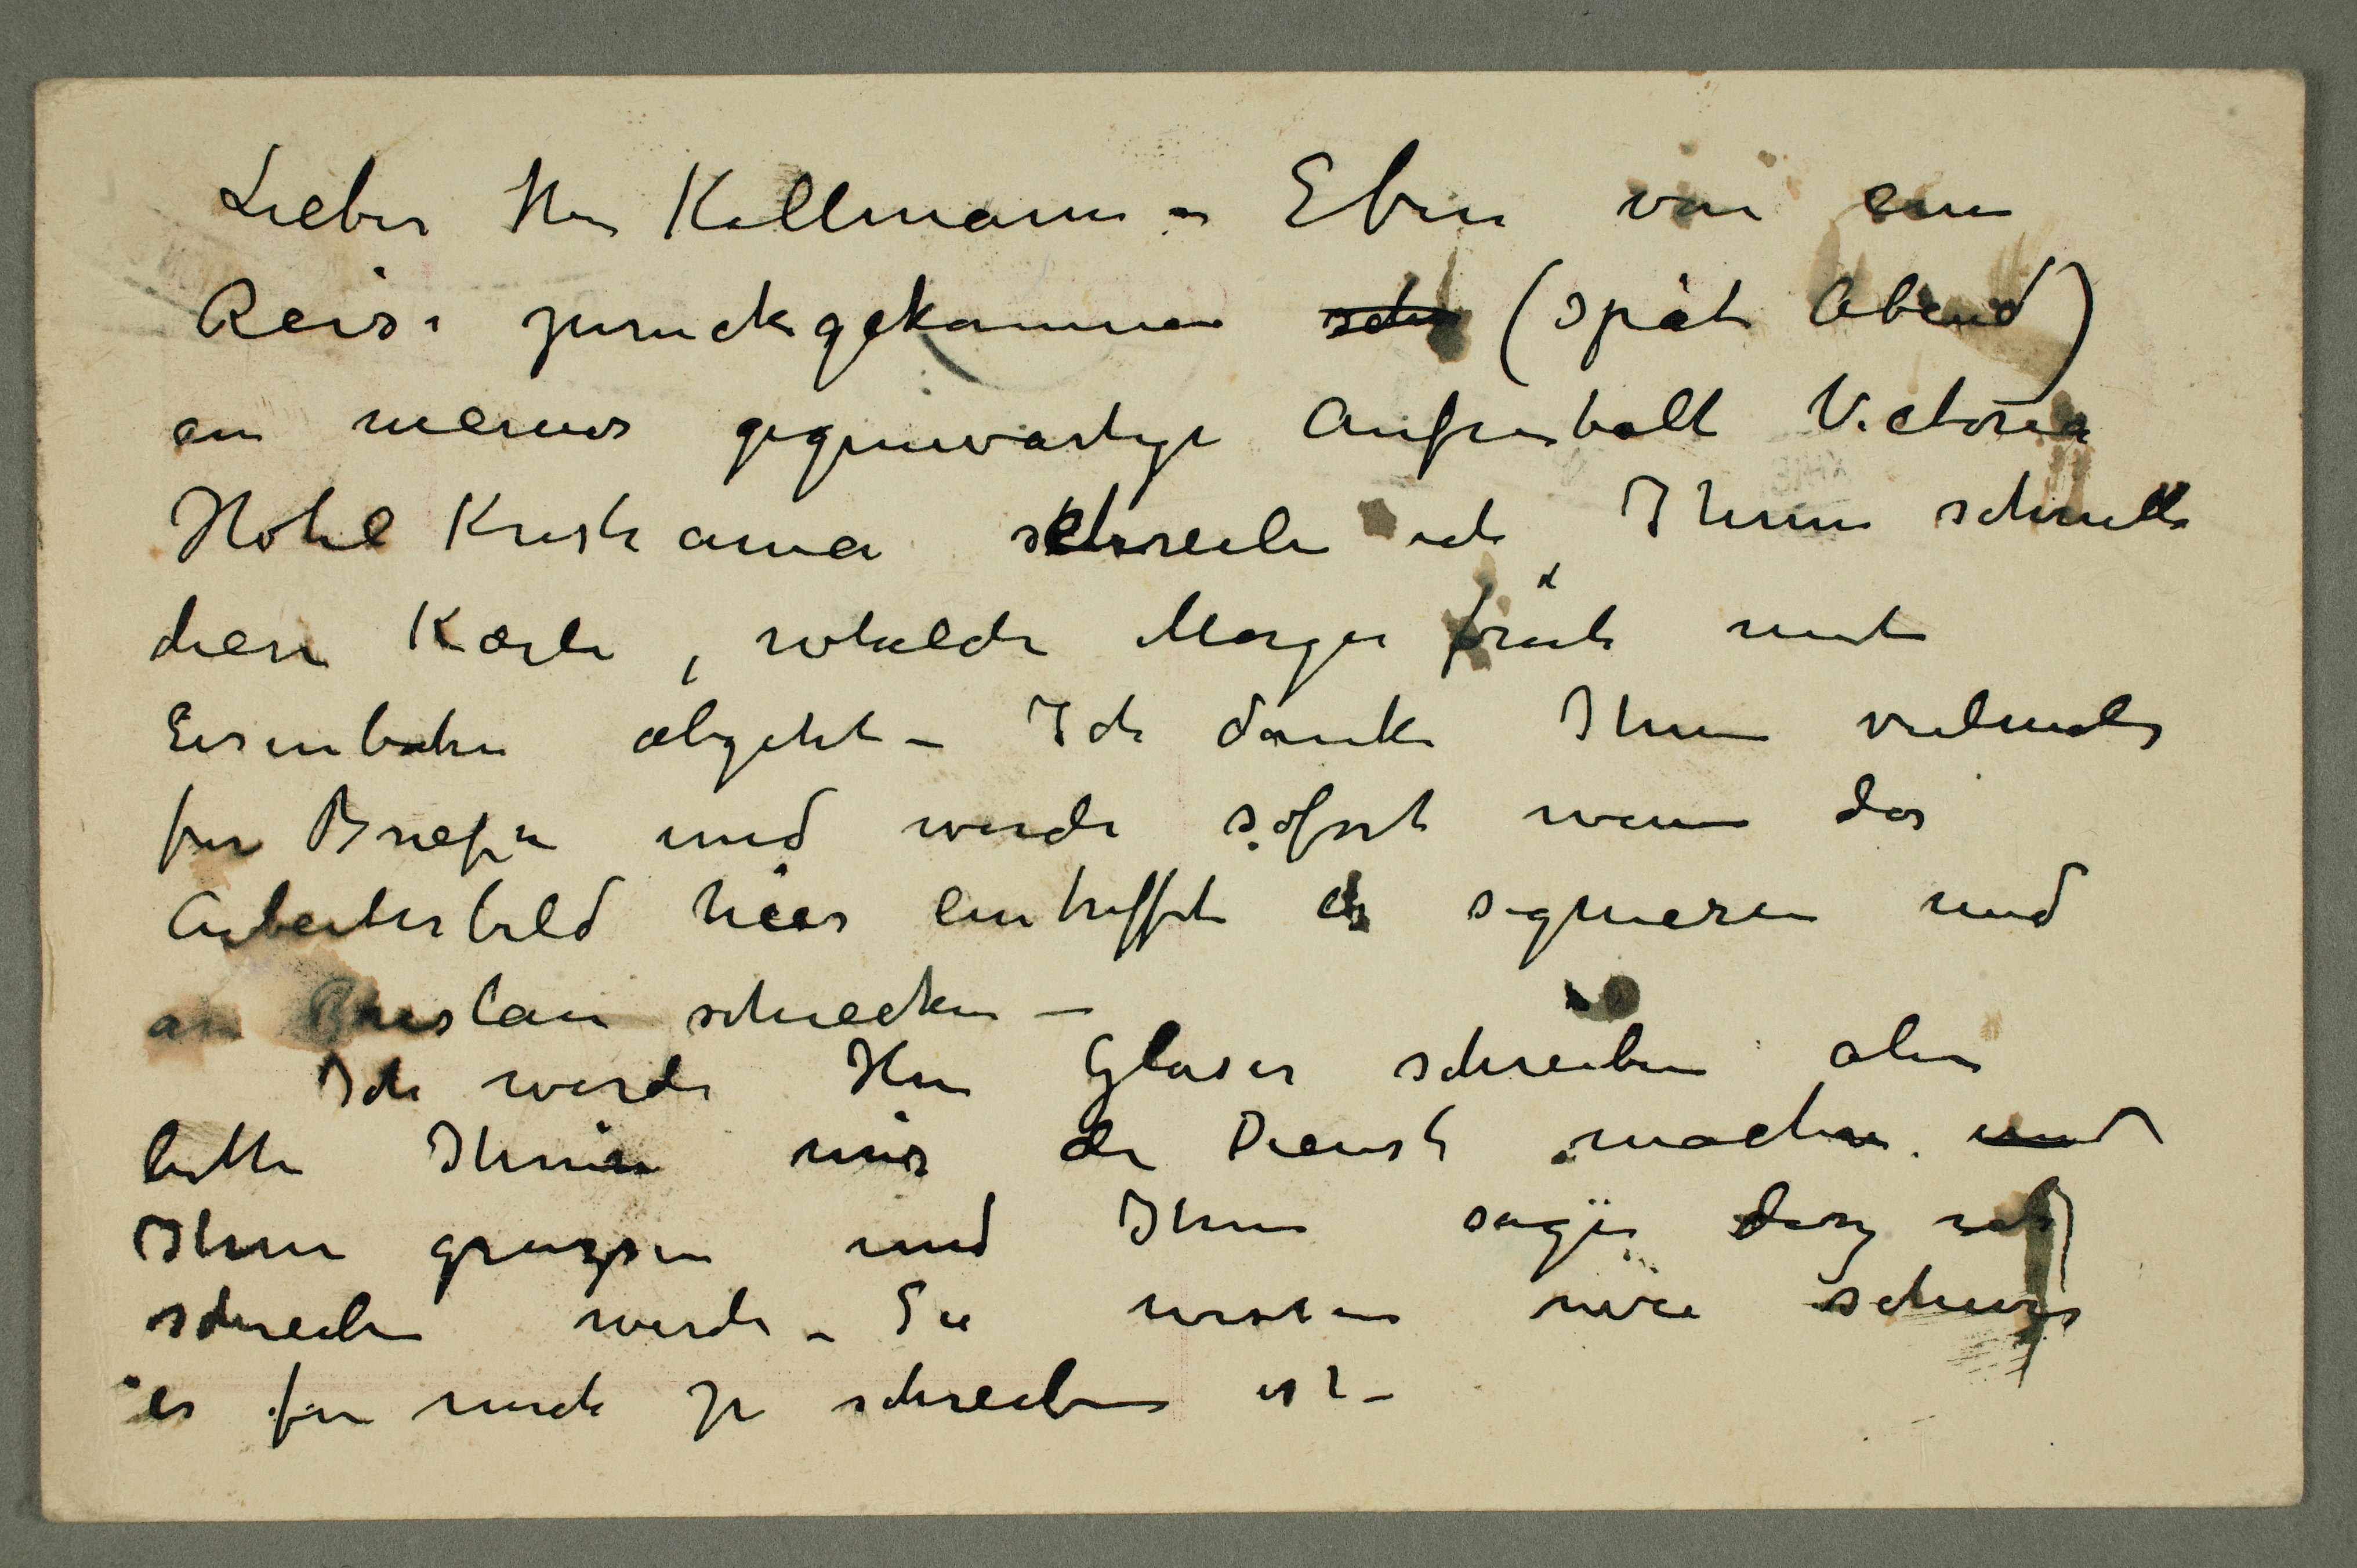 Lieber Herr Kollmann – Eben von eine
Reise zuruckgekommen sch (späte Abend)
an meines gegenwartige Aufenthalt Victoria
Hotel Kristiania schreibe ich Ihnen schnell
diese Karte, sobald Morgen früh mit
Eisenbahn abgeht – Ich danke Ihnen vielmals
fur Briefen und werde sofort wenn das
Arbeiterbild hier eintrifft es signieren und
an Breslau schicken –
Ich werde Herr Glaser schreiben aber
bitte Ihnen mir der Dienst machen und
Ihm gruzsen und Ihm sagen dasz ich
schreiben werde – Sie wissen wie schwer
es fur mich zu schreiben ist –